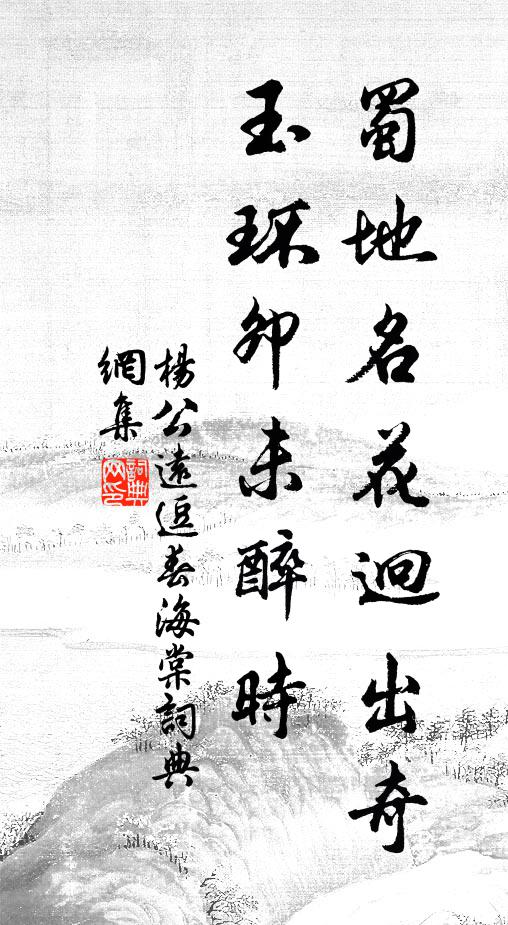 蜀地名花迥出奇
玉环卯未醉時
楊公遠逗春海棠詞典
網集
詞典
网印